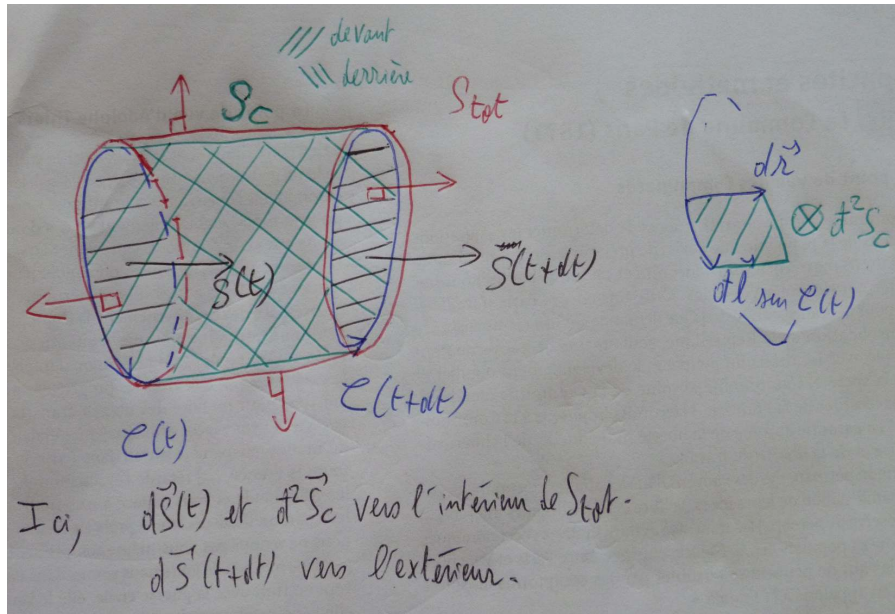 /// devant
\\\ derrière
S_c
S_tot
dr⃗
⊗ d²S_c
S⃗(t)
S⃗(t+dt)
dl sur C(t)
C(t)
C(t+dt)
Ici, dS⃗(t) et d²S⃗_c vers l'intérieur de S_tot.
dS⃗(t+dt) vers l'extérieur.